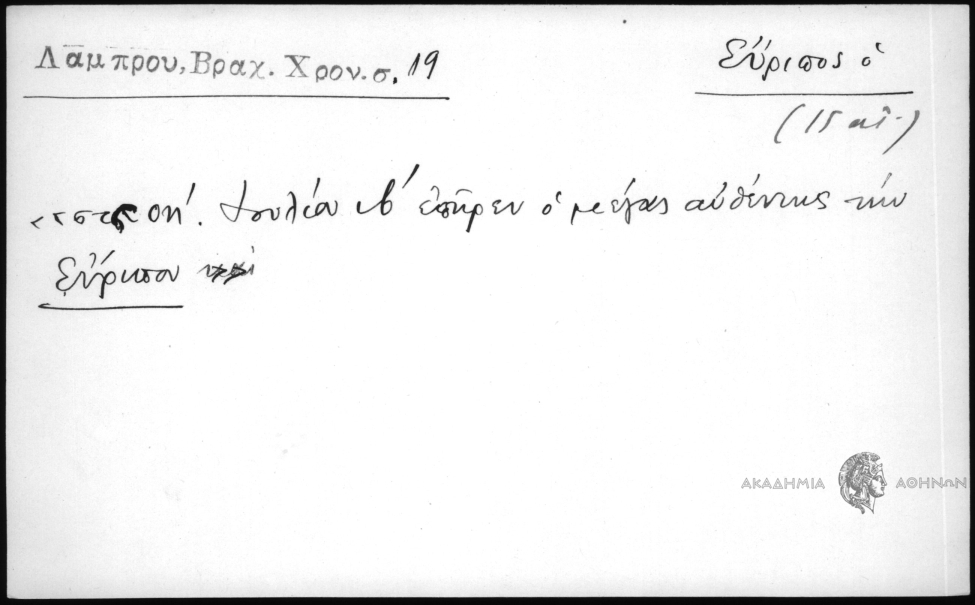 Λάμπρου, Βραχ. Χρον. σ. 19
Εὔριπος ὁ
(15 αἰ.)
οη΄. Ἰουλίου ιβ΄ ἐπῆρεν ὁ μέγας αὐθέντης τὴν
Εὔριπον
ΑΚΑΔΗΜΙΑ ΑΘΗΝΩΝ